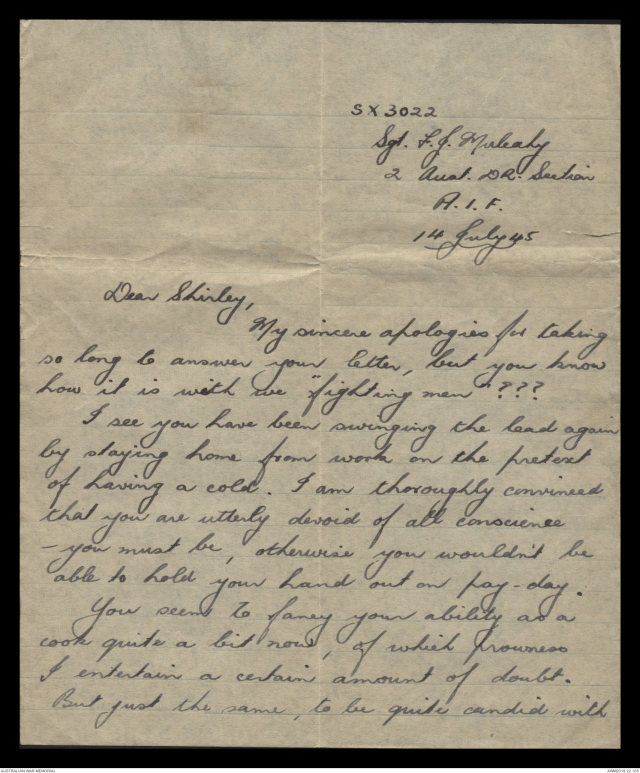 SX3022
Sgt. F. J. Mulcahy
2 Aust. DR. Section
A. I. F.
14 July 45
Dear Shirley,
My sincere apologies for taking
so long to answer your letter, but you know
how it is with we "fighting men"???
I see you have been swinging the lead again
by staying home from work on the pretext
of having a cold. I am thoroughly convinced
that you are utterly devoid of all conscience
- you must be, otherwise you wouldn't be
able to hold your hand out on pay-day.
You seem to fancy your ability as a
cook quite a bit now, of which prowess
I entertain a certain amount of doubt.
But just the same, to be quite candid with
AUSTRALIAN WAR MEMORIAL